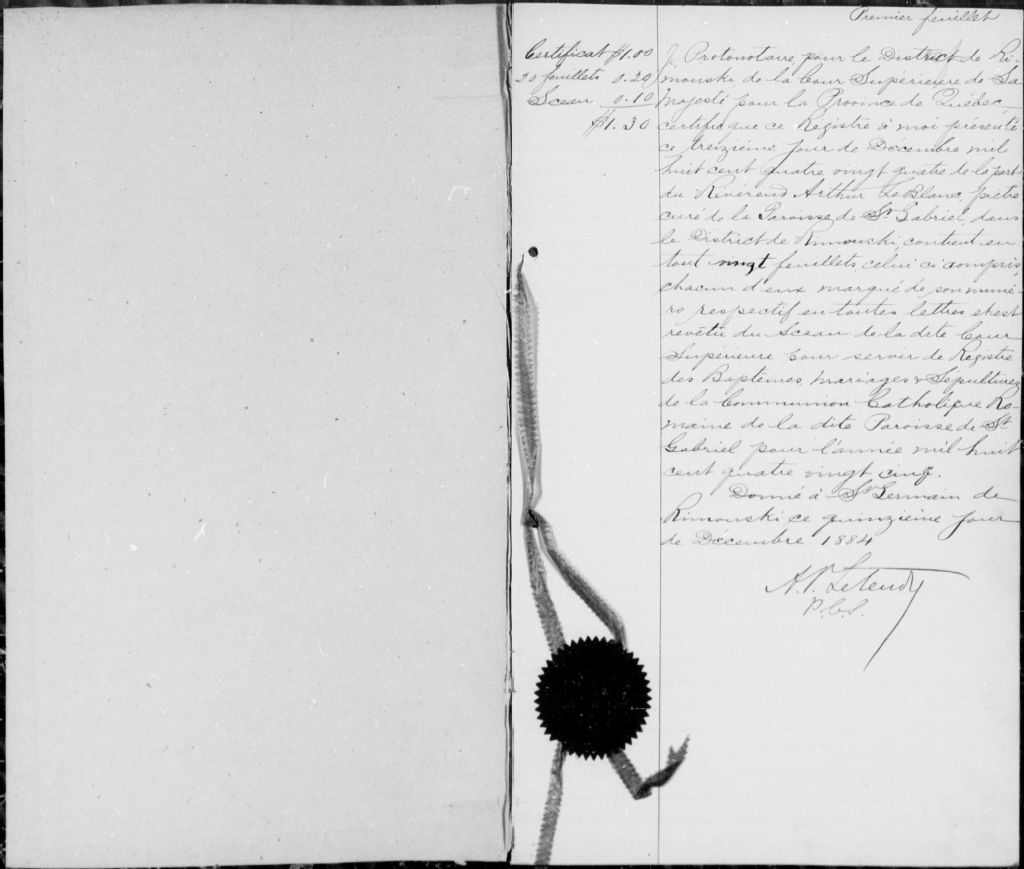 Premier feuillet
Certificat $1.00
20 feuillets 0.20
Sceau 0.10
$1.30
Je Protonotaire, pour le District de Ri-
mouski de la Cour Supérieure de Sa
Majesté pour la Province de Québec
certifie que ce Régistre à moi présenté
ce treizième jour de Décembre mil
huit cent quatre vingt quatre de la part
du Révérend Arthur LeBlanc, prêtre
curé de la Paroisse de St Gabriel, dans
le District de Rimouski, contient en
tout vingt feuillets, celui ci compris,
chacun d'eux marqué de son numé-
ro respectif en toutes lettres et est
revêtu du Sceau de la dite Cour
Supérieure pour servir de Régistre
des Baptêmes, Mariages & Sépultures
de la Communion Catholique Ro-
maine de la dite Paroisse de St
Gabriel pour l'année mil huit
cent quatre vingt cinq.
Donné à St Germain de
Rimouski ce quinzième jour
de Décembre 1884
A.P. Letendre
P.C.S.